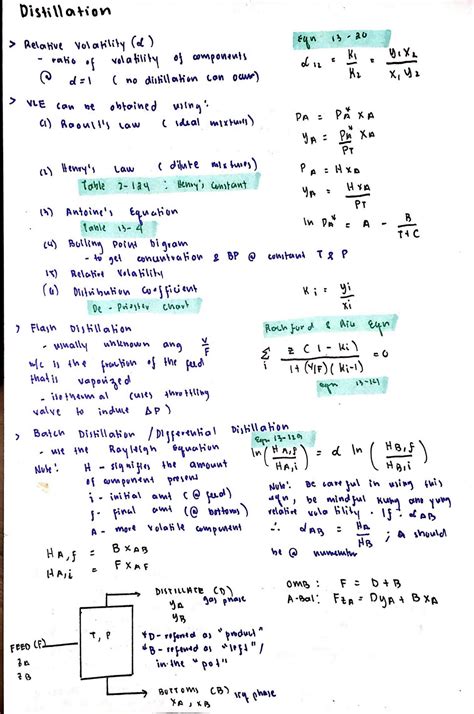 Distillation
> Relative Volatility (α)
- ratio of volatility of components
@ α=1 ( no distillation can occur)
Eqn 13-20
α12 = K1/K2 = y1x2/x1y2
> VLE can be obtained using:
(1) Raoult's Law ( ideal mixtures)
PA = PA* XA
yA = PA*/PT XA
(2) Henry's Law ( dilute mixtures)
Table 2-124 : Henry's Constant
PA = HXA
yA = HXA/PT
(3) Antoine's Equation
Table 13-4
ln PA* = A - B/T+C
(4) Boiling Point Diagram
- to get concentration & BP @ constant T & P
(5) Relative Volatility
(6) Distribution Coefficient
De-Priester Chart
Ki = yi/xi
> Flash Distillation
- usually unknown ang V/F
w/c is the fraction of the feed
that is vaporized
- isothermal (uses throttling
valve to induce ΔP )
Rachford & Rice Eqn
Σ i z(1-Ki)/1+(V/F)(Ki-1) = 0
eqn 13-
> Batch Distillation / Differential Distillation
- use the Rayleigh Equation
Note: H - signifies the amount
of component present
i - initial amt (@ feed)
f - final amt (@ bottoms)
A - more volatile component
HA,f = BXAB
HA,i = FXAF
Eqn 13-129
ln(HA,f/HA,i) = α ln(HB,f/HB,i)
Note: Be careful in using this
eqn, be mindful kung ano yung
relative volatility. If: αAB
∴ αAB = HA/HB ; A should
be @ numerator
OMB : F = D+B
A-Bal: FzA = DyA + BXA
FEED (F)
zA
zB
T, P
DISTILLATE (D) gas phase
yA
yB
*D - referred as "product"
*B - referred as "left" /
in the "pot"
BOTTOMS (B) liq phase
XA, XB